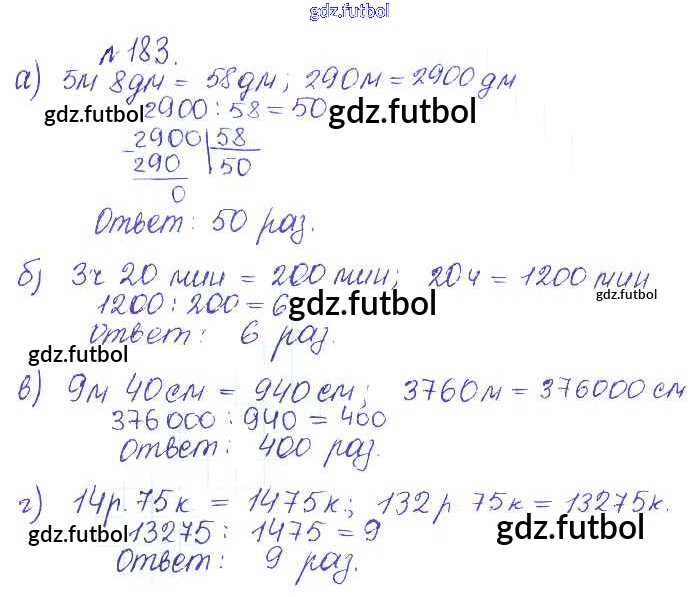 gdz.futbol
№183.
а) 5м 8дм = 58дм; 290м = 2900дм
gdz.futbol 2900 : 58 = 50 gdz.futbol
2900 | 58
290 | 50
0
Ответ: 50 раз.
б) 3ч 20 мин = 200 мин; 20ч = 1200 мин
1200 : 200 = 6 gdz.futbol gdz.futbol
Ответ: 6 раз.
gdz.futbol
в) 9м 40см = 940см; 3760м = 376000 см
376 000 : 940 = 400
Ответ: 400 раз.
г) 14р. 75к = 1475к; 132р 75к = 13275к.
gdz.futbol 13275 : 1475 = 9 gdz.futbol
Ответ: 9 раз.